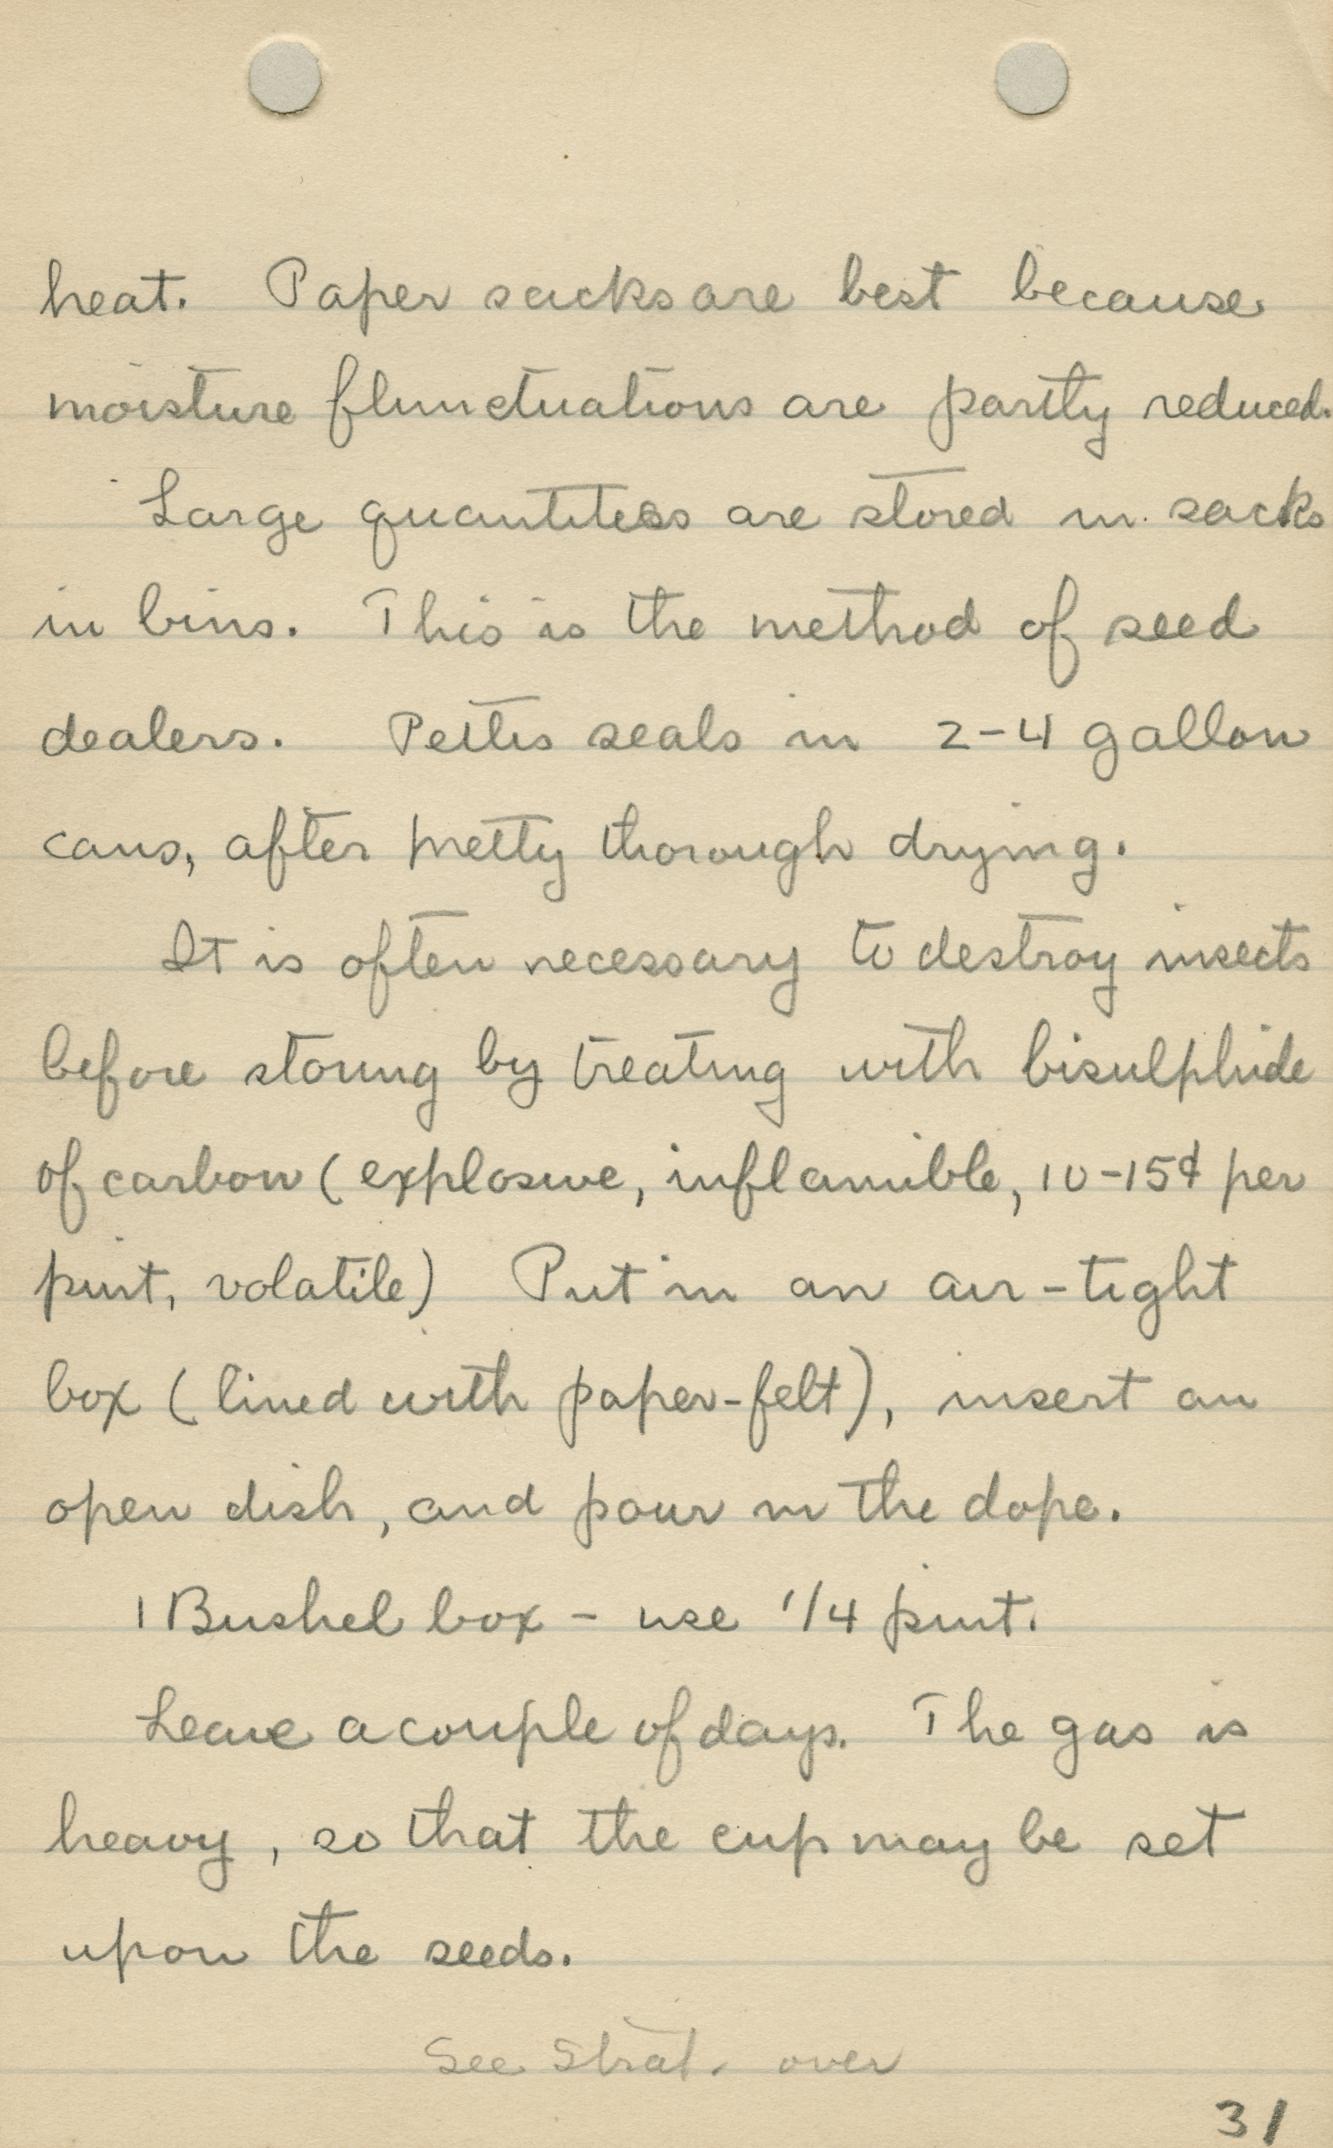 heat. Paper sacks are best because
moisture flunctuations are partly reduced.
Large quantitess are stored in sacks
in bins. This is the method of seed
dealers. Pettis seals in 2-4 gallon
cans, after pretty thorough drying.
It is often necessary to destroy insects
before storing by treating with bisulphide
of carbon (explosive, inflamible, 10-15¢ per
pint, volatile) Put in an air-tight
box (lined with paper-felt), insert an
open dish, and pour in the dope.
1 Bushel box - use 1/4 pint.
Leave a couple of days. The gas is
heavy, so that the cup may be set
upon the seeds.
See Strat. over
31